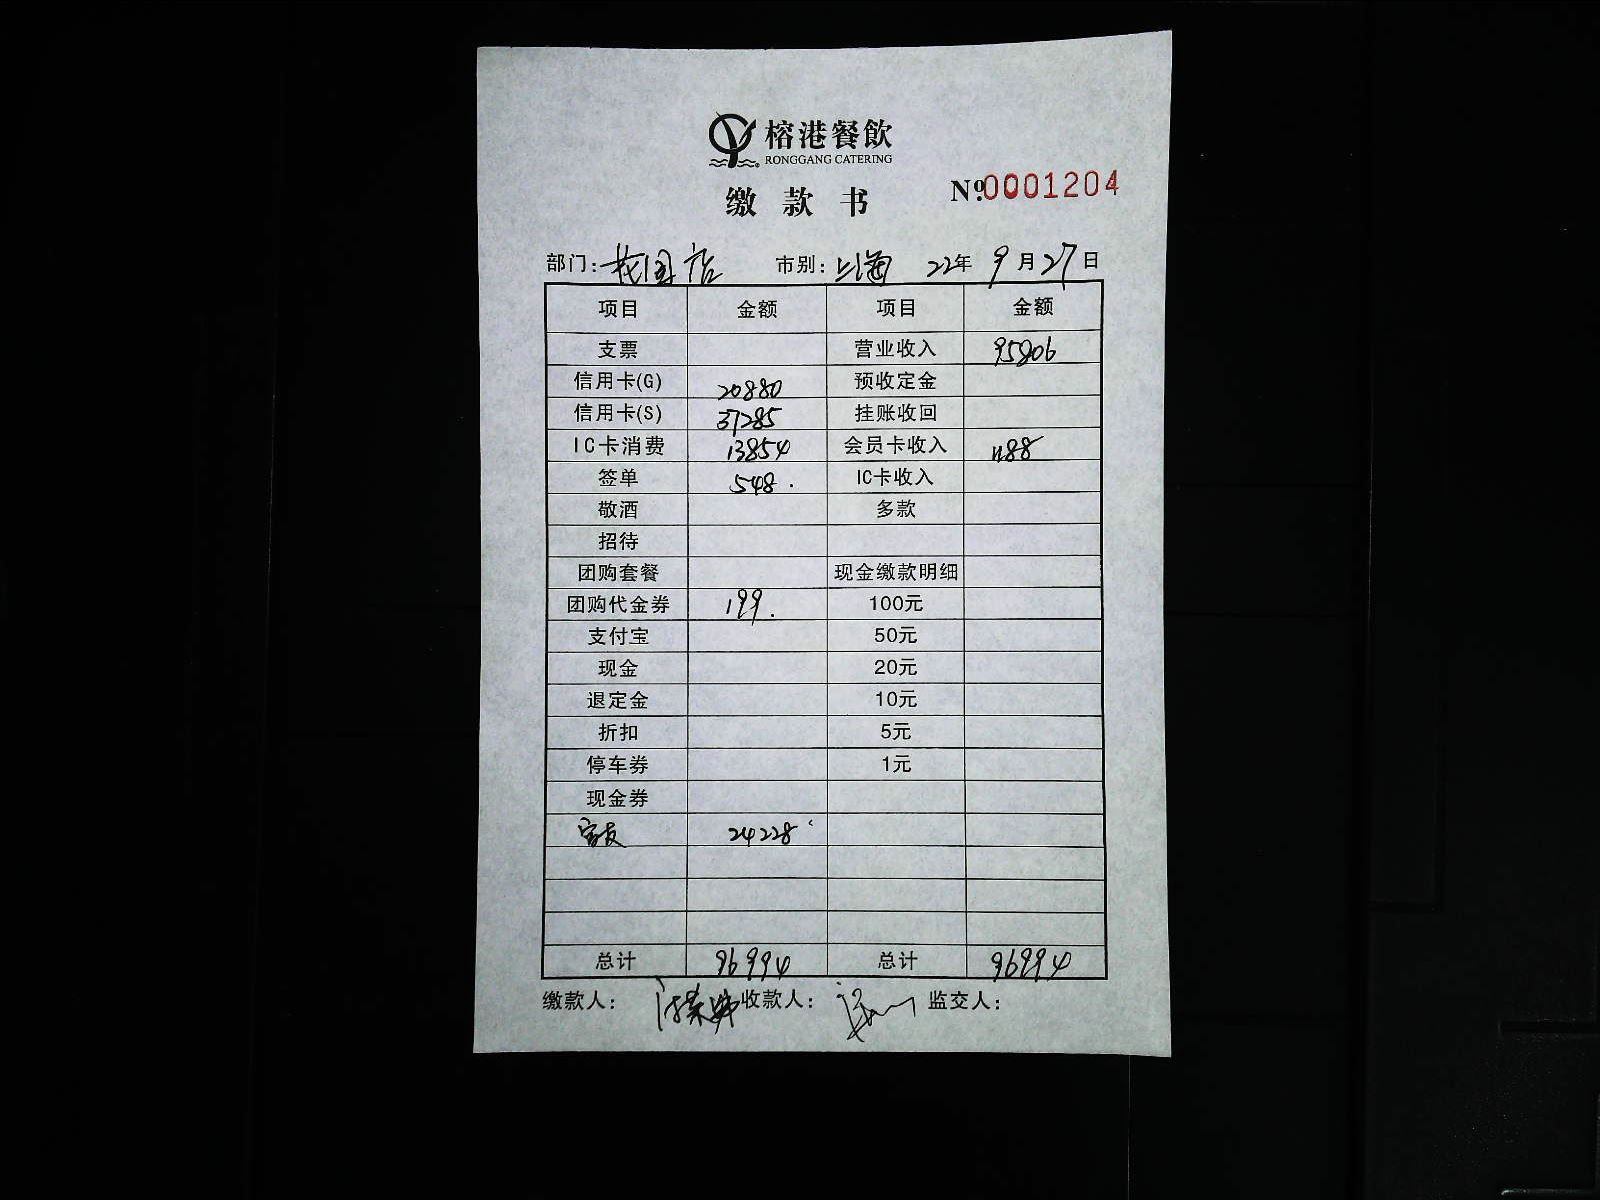 榕港餐飲
RONGGANG CATERING
缴款书 №0001204
部门: 花园店 市别: 上海 22年 9月27日
项目 金额 项目 金额
支票 营业收入 95806
信用卡(G) 20880 预收定金
信用卡(S) 37285 挂账收回
IC卡消费 13854 会员卡收入 1188
签单 548. IC卡收入
敬酒 多款
招待
团购套餐 现金缴款明细
团购代金券 199. 100元
支付宝 50元
现金 20元
退定金 10元
折扣 5元
停车券 1元
现金券
24228
总计 96994 总计 96994
缴款人: 收款人: 监交人: